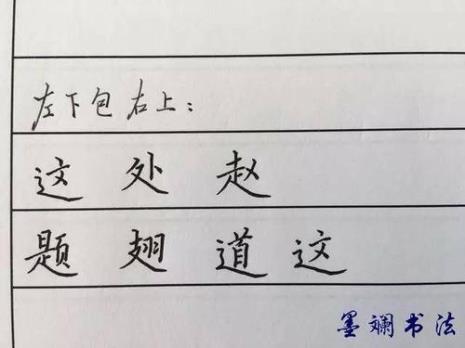 左下包右上：
这 处 赵
题 翅 道 这
墨斓书法